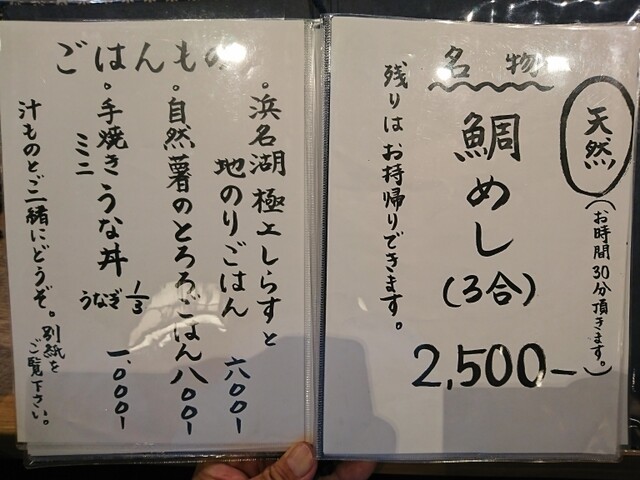 天然
(お時間30分頂きます。)
名物
鯛めし
(3合)
2,500-
残りはお持帰りできます。
ごはんもの
・浜名湖極上しらすと
地のりごはん 六〇〇-
・自然薯のとろろごはん 八〇〇-
・手焼きうな丼
ミニ
うなぎ1/3
一、〇〇〇-
汁ものとご一緒にどうぞ。別紙を
ご覧下さい。